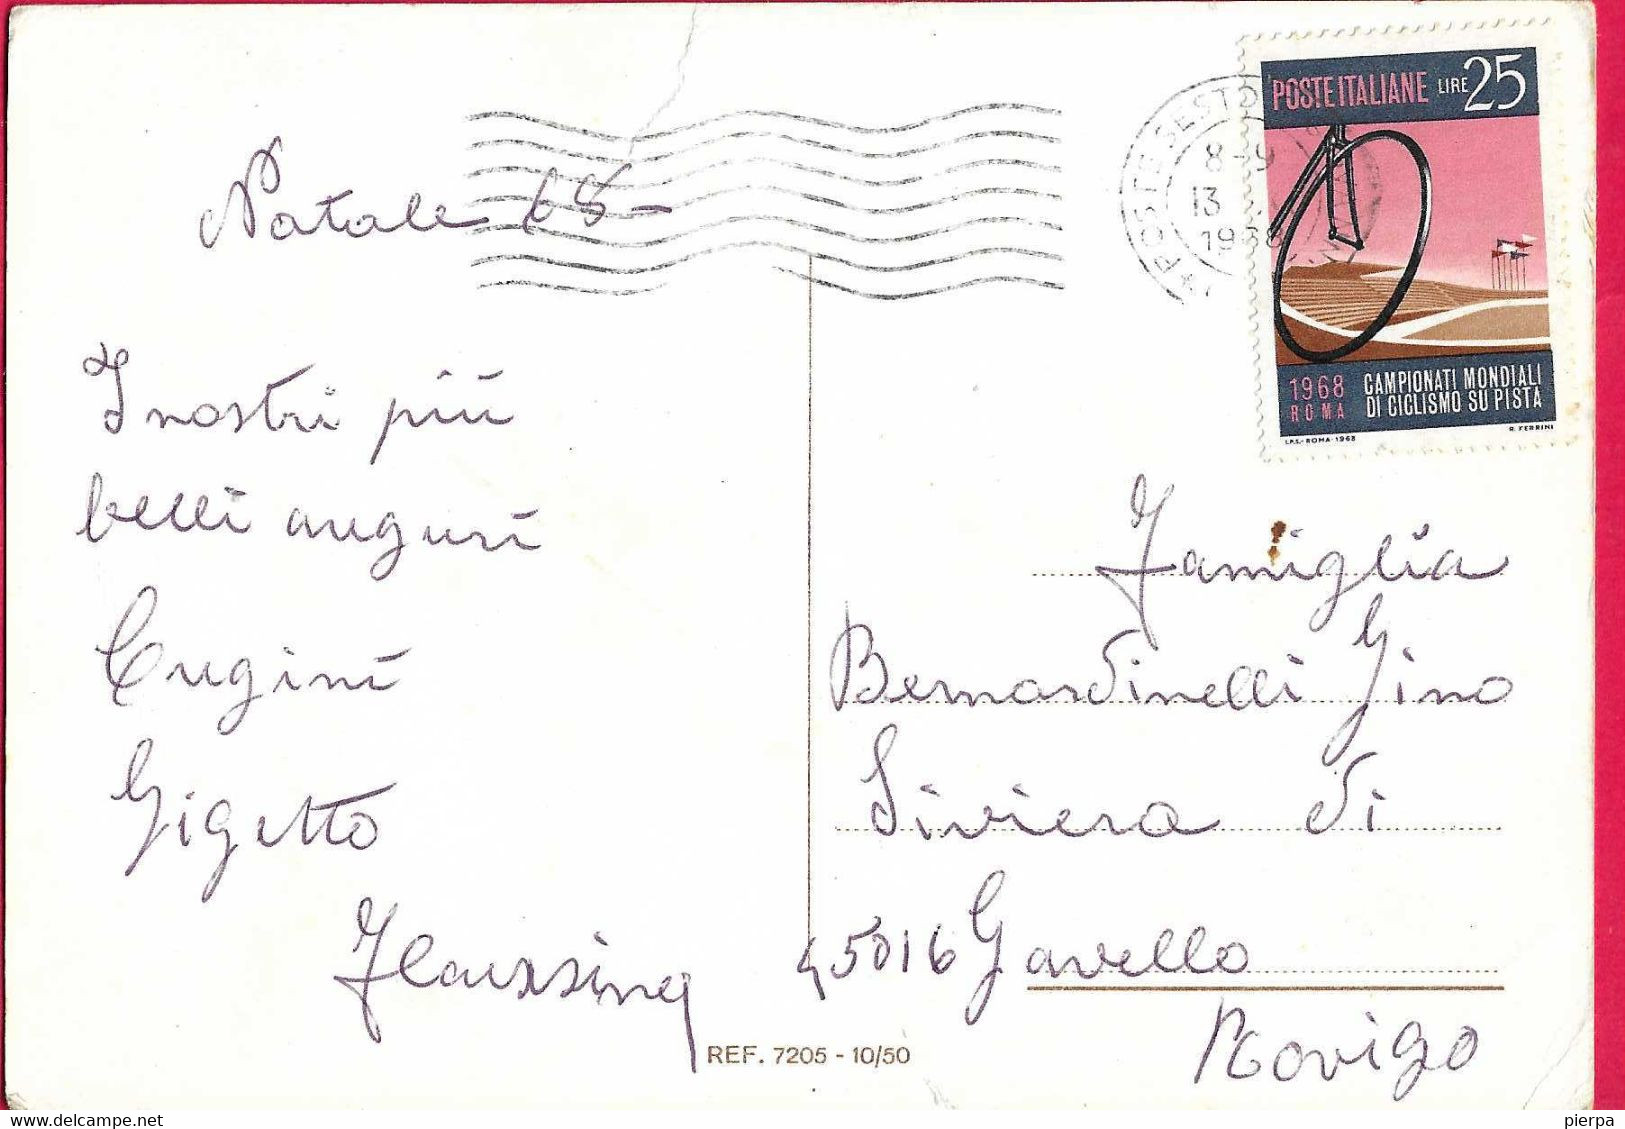 Natale 68-
I nostri più
belli auguri
Cugini
Gigetto
POSTE SESTO
8-9
13
1968
POSTE ITALIANE LIRE 25
1968 ROMA
CAMPIONATI MONDIALI
DI CICLISMO SU PISTA
I.P.S.-ROMA-1968
R. FERRINI
Famiglia
Bernardinelli Gino
Riviera di
45016 Gavello
Rovigo
REF. 7205 - 10/50
delcampe.net
pierpa